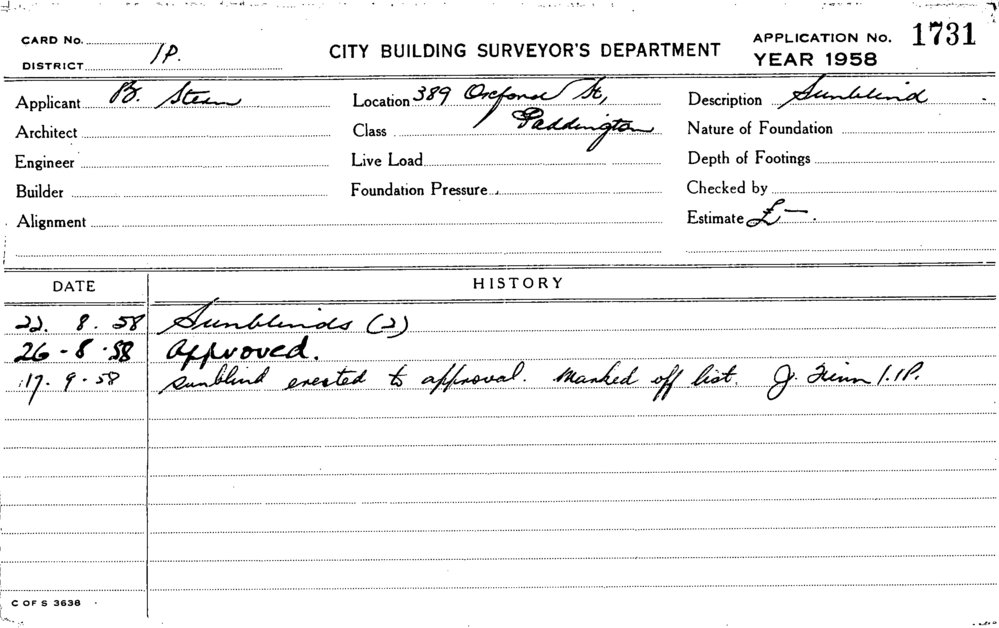 CARD No.
DISTRICT 1P.
CITY BUILDING SURVEYOR'S DEPARTMENT
APPLICATION No. 1731
YEAR 1958
Applicant B. Stern
Location 389 Oxford St,
Paddington
Description Sunblind
Architect
Class
Nature of Foundation
Engineer
Live Load
Depth of Footings
Builder
Foundation Pressure
Checked by
Alignment
Estimate £—.
DATE HISTORY
22. 8. 58 Sunblinds (2)
26-8-58 Approved.
17. 9. 58 sunblind erected to approval. Marked off list. J. 1.1P.
C OF S 3638